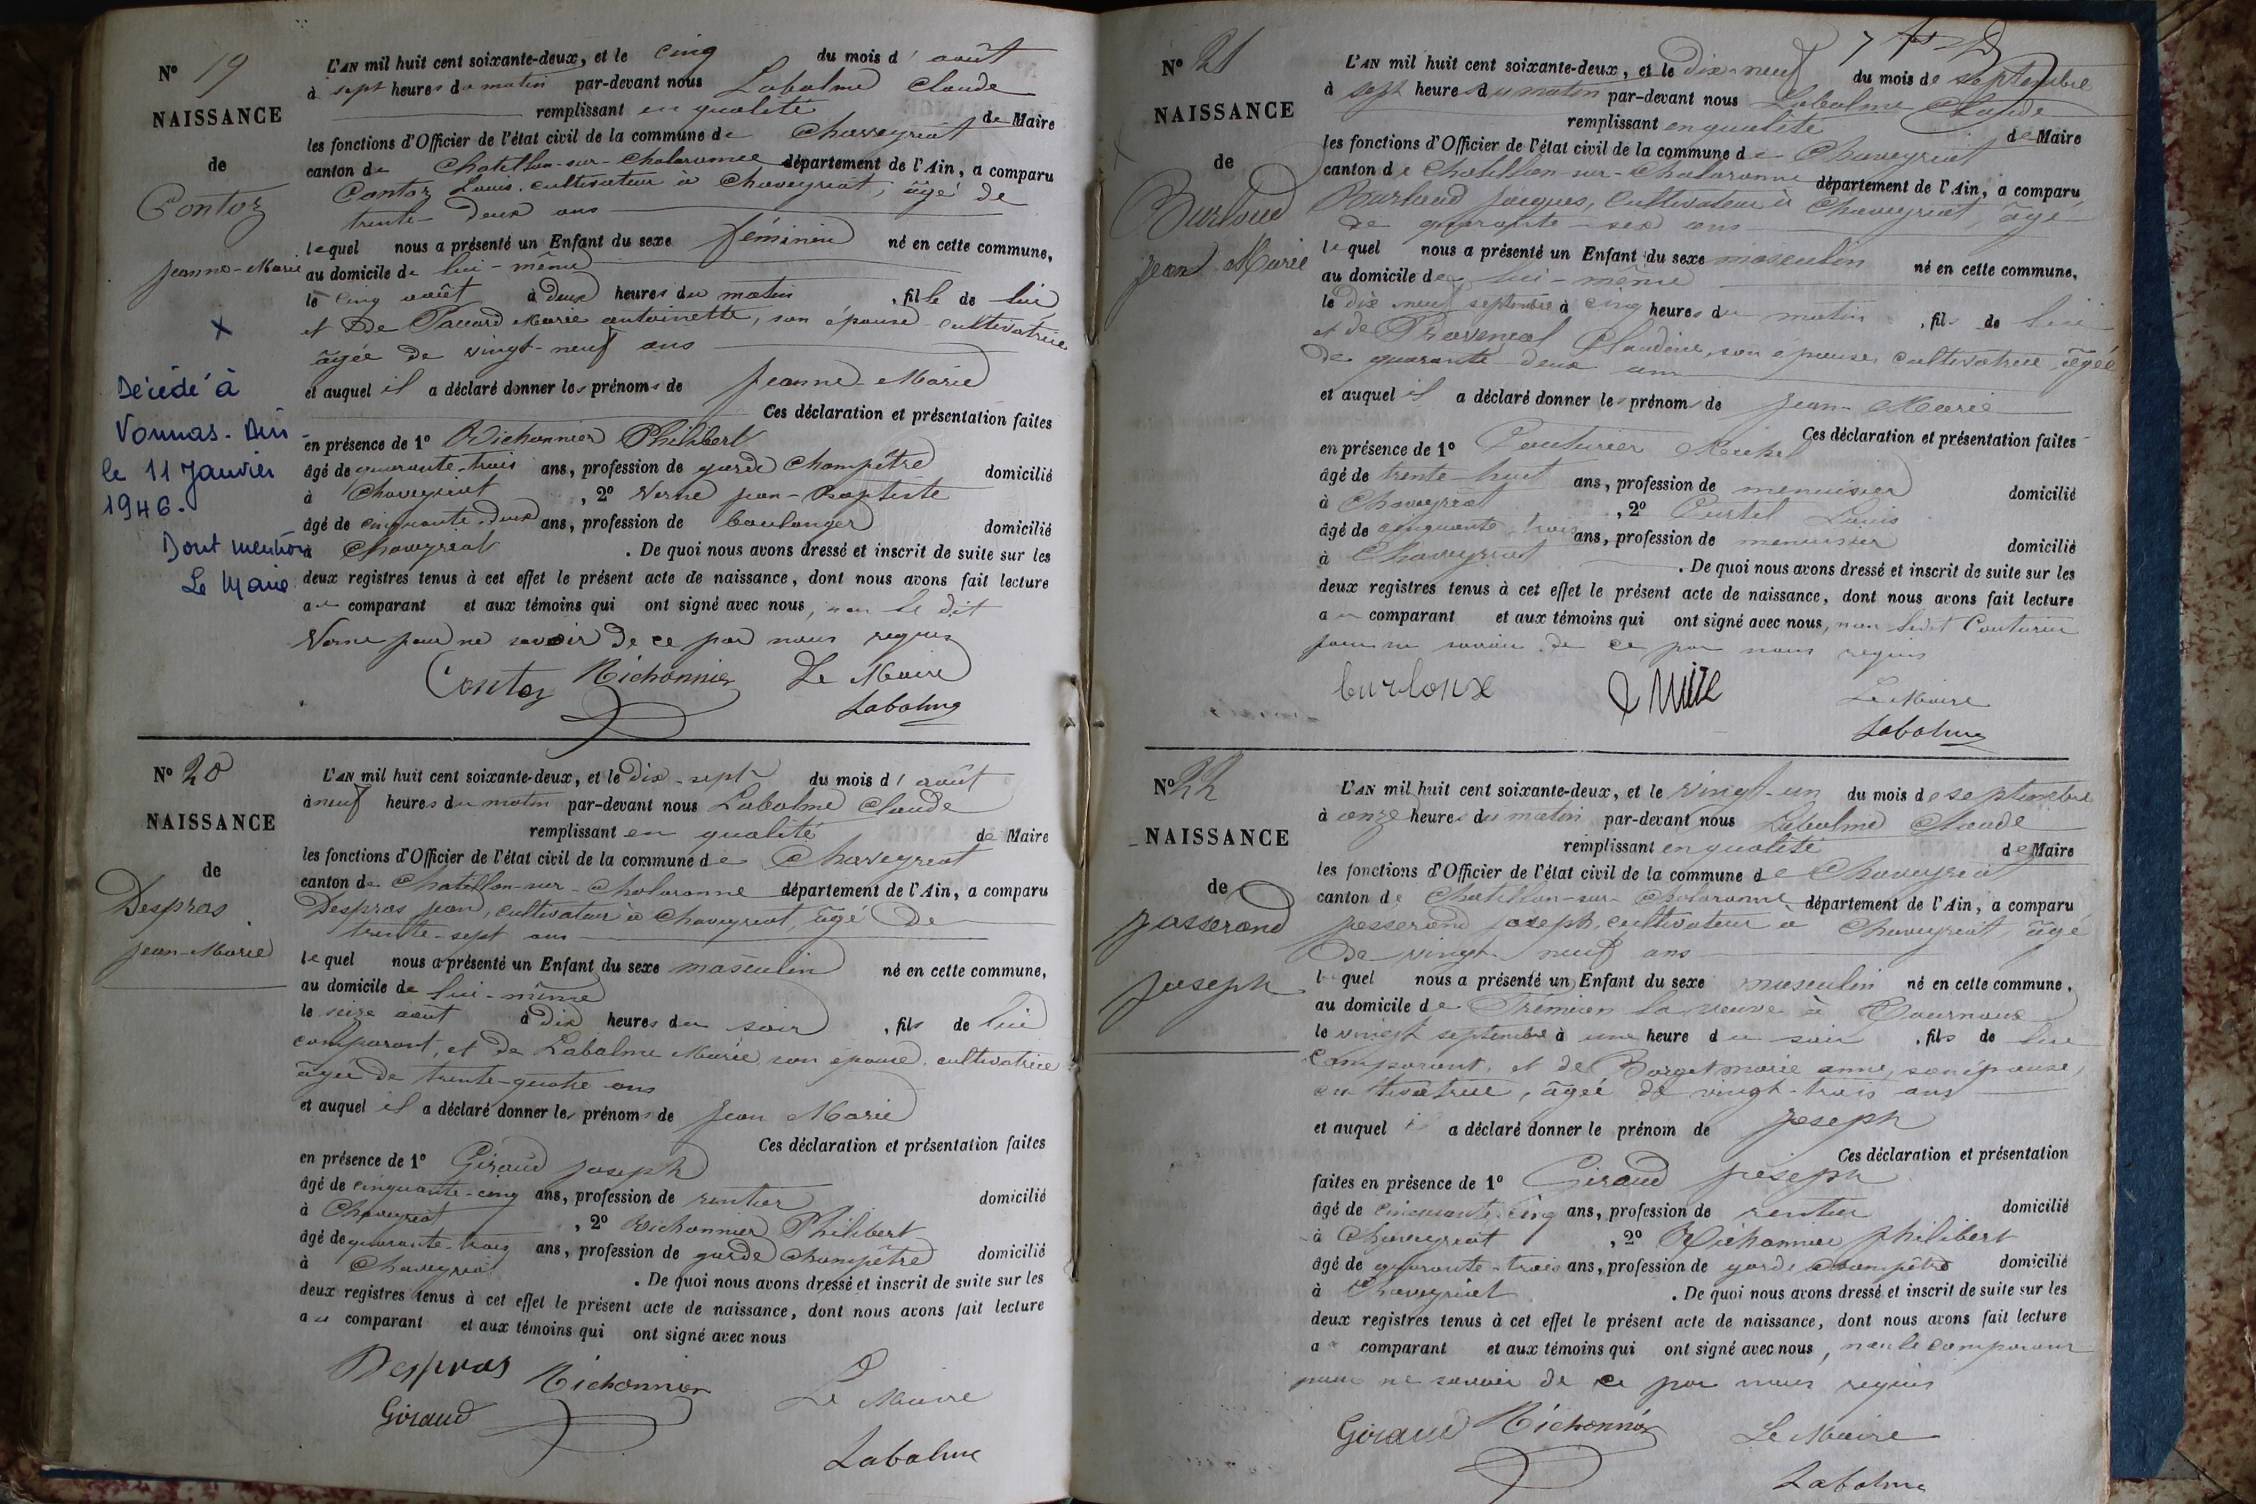 N° 19
NAISSANCE
de
Contoz
Jeanne-Marie
x
Décédé à
Vonnas - Ain
le 11 Janvier
1946.
Dont mention
Le Maire
L'AN mil huit cent soixante-deux, et le cinq du mois d'août
à sept heures du matin par-devant nous Labalme Claude
remplissant en qualité de Maire
les fonctions d'Officier de l'état civil de la commune de Chaveyriat
canton de Chatillon-sur-Chalaronne département de l'Ain, a comparu
Contoz Louis, cultivateur à Chaveyriat, âgé de
trente-deux ans
lequel nous a présenté un Enfant du sexe féminin né en cette commune,
au domicile de lui-même
le cinq août à deux heures du matin, fille de lui
et de Paccard Marie antoinette, son épouse cultivatrice
âgée de vingt-neuf ans
et auquel il a déclaré donner les prénoms de Jeanne-Marie
Ces déclaration et présentation faites
en présence de 1° Richonnier Philibert
âgé de quarante-trois ans, profession de garde champêtre domicilié
à Chaveyriat, 2° Verne jean-Baptiste
âgé de cinquante-deux ans, profession de boulanger domicilié
à Chaveyriat. De quoi nous avons dressé et inscrit de suite sur les
deux registres tenus à cet effet le présent acte de naissance, dont nous avons fait lecture
au comparant et aux témoins qui ont signé avec nous, non le dit
Verne pour ne savoir de ce par nous requis
Contoz Richonnier Le Maire
Labalme
N° 20
NAISSANCE
de
Despras
jean-Marie
L'AN mil huit cent soixante-deux, et le dix-sept du mois d'août
à neuf heures du matin par-devant nous Labalme Claude
remplissant en qualité de Maire
les fonctions d'Officier de l'état civil de la commune de Chaveyriat
canton de Chatillon-sur-Chalaronne département de l'Ain, a comparu
Despras jean, cultivateur à Chaveyriat, âgé de
trente-sept ans
lequel nous a présenté un Enfant du sexe masculin né en cette commune,
au domicile de lui-même
le seize août à dix heures du soir, fils de lui
comparant, et de Labalme Marie son épouse, cultivatrice
âgée de trente-quatre ans
et auquel il a déclaré donner les prénoms de Jean Marie
Ces déclaration et présentation faites
en présence de 1° Giraud joseph
âgé de cinquante-cinq ans, profession de rentier domicilié
à Chaveyriat, 2° Richonnier Philibert
âgé de quarante-trois ans, profession de garde champêtre domicilié
à Chaveyriat. De quoi nous avons dressé et inscrit de suite sur les
deux registres tenus à cet effet le présent acte de naissance, dont nous avons fait lecture
au comparant et aux témoins qui ont signé avec nous
Despras Richonnier Le Maire
Giraud
Labalme
N° 21
NAISSANCE
de
Burloud
Jean Marie
L'AN mil huit cent soixante-deux, et le dix-neuf du mois de septembre
à sept heures du matin par-devant nous Labalme Claude
remplissant en qualité de Maire
les fonctions d'Officier de l'état civil de la commune de Chaveyriat
canton de Chatillon-sur-Chalaronne département de l'Ain, a comparu
Burloud Jacques, Cultivateur à Chaveyriat, âgé
de quarante-six ans
lequel nous a présenté un Enfant du sexe masculin né en cette commune,
au domicile de lui-même
le dix neuf septembre à cinq heures du matin, fils de lui
et de Provencal Claudine, son épouse, cultivatrice, âgée
de quarante-deux ans
et auquel il a déclaré donner les prénoms de Jean-Marie
Ces déclaration et présentation faites
en présence de 1° Couturier Michel
âgé de trente-huit ans, profession de menuisier domicilié
à Chaveyriat, 2° Curtil Louis
âgé de cinquante-trois ans, profession de menuisier domicilié
à Chaveyriat. De quoi nous avons dressé et inscrit de suite sur les
deux registres tenus à cet effet le présent acte de naissance, dont nous avons fait lecture
au comparant et aux témoins qui ont signé avec nous, non ledit Couturier
pour ne savoir de ce par nous requis
burloux Le Maire
Labalme
N° 22
NAISSANCE
de
Josserand
Joseph
L'AN mil huit cent soixante-deux, et le vingt-un du mois de septembre
à onze heures du matin par-devant nous Labalme Claude
remplissant en qualité de Maire
les fonctions d'Officier de l'état civil de la commune de Chaveyriat
canton de Chatillon-sur-Chalaronne département de l'Ain, a comparu
josserand joseph, cultivateur à Chaveyriat, âgé
de vingt-neuf ans
lequel nous a présenté un Enfant du sexe masculin né en cette commune,
au domicile de la veuve à
le vingt septembre à une heure du soir, fils de lui
comparant, et de Borget marie anne, son épouse,
cultivatrice, âgée de vingt-trois ans
et auquel il a déclaré donner le prénom de Joseph
Ces déclaration et présentation
faites en présence de 1° Giraud joseph
âgé de cinquante-cinq ans, profession de rentier domicilié
à Chaveyriat, 2° Richonnier philibert
âgé de quarante-trois ans, profession de garde champêtre domicilié
à Chaveyriat. De quoi nous avons dressé et inscrit de suite sur les
deux registres tenus à cet effet le présent acte de naissance, dont nous avons fait lecture
au comparant et aux témoins qui ont signé avec nous, non le comparant
pour ne savoir de ce par nous requis
Giraud Richonnier Le Maire
Labalme